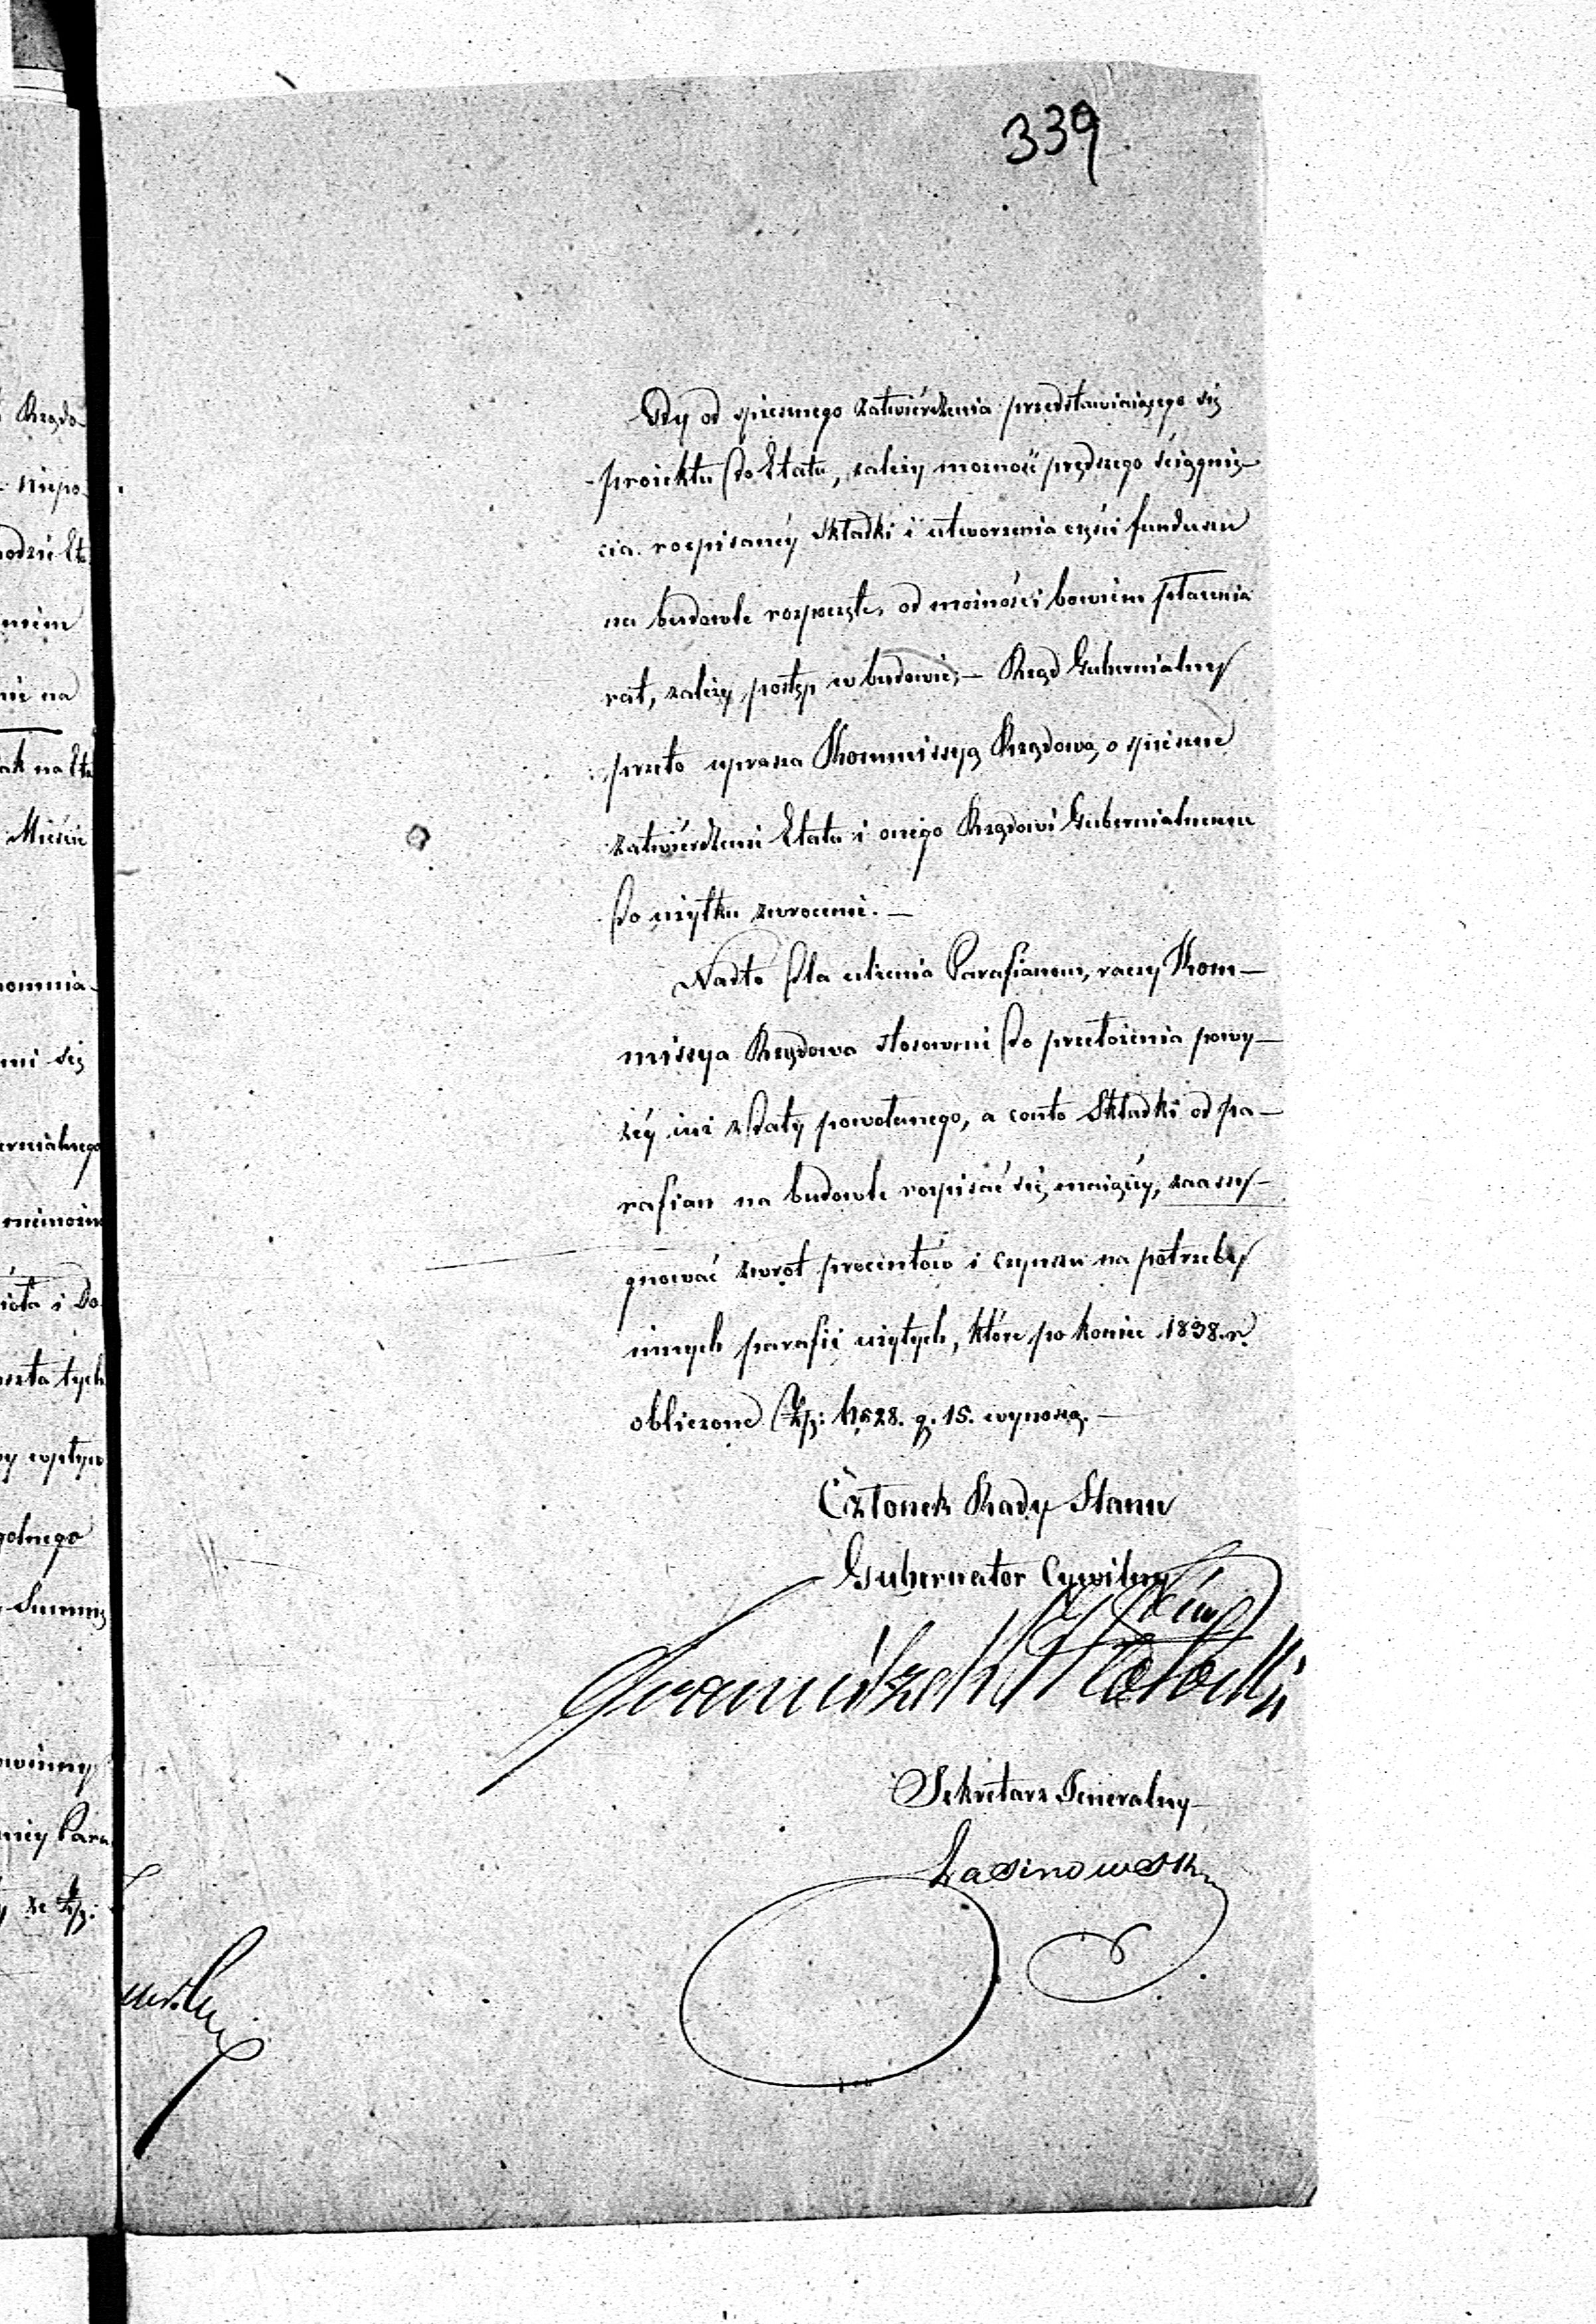 339
Gdy od spiesznego zatwierdzenia przedstawiaiącego się
proiektu do Etatu, zależy możność prędszego ściągnię-
cia rozpisanéy składki i utworzenia części funduszu
na budowle rozpoczęte, od możności bowiem płacenia
rat, zależy postęp w budowie; — Rząd Gubernialny
przeto uprasza Kommissyą Rządową, o spieszne
zatwierdzenie Etatu i onego Rządowi Gubernialnemu
do użytku zwrocenie. —
Nadto dla ulżenia Parafianom, raczy Kom-
missya Rządowa stosownie do przełożenia powy-
żéy iuż z daty powołanego, a conto Składki od pa-
rafian na budowle rozpisać się maiącéy, zaassy-
gnować zwrot procentów i czynszu na potrzeby
innych parafii użytych, które po koniec 1838. r.
obliczone Złp: 4528. g. 15. wynoszą. —
Członek Rady Stanu
Gubernator Cywilny
Sekretarz Jeneralny
Rządo-
niepo-
nie na
ak na Eta
Mieście
omnia-
mi się
ernialnego
ioła i Do
szta tych
y wpływ
Summę
ney Para
ze Złp: